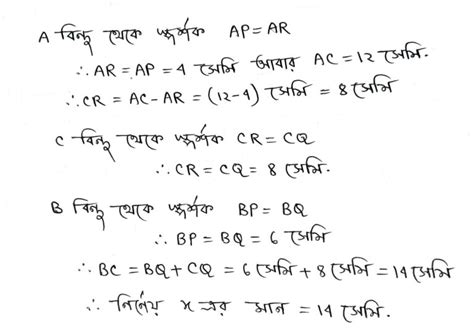 A বিন্দু থেকে স্পর্শক AP = AR
∴ AR = AP = 4 সেমি আবার AC = 12 সেমি.
∴ CR = AC - AR = (12-4) সেমি = 8 সেমি
C বিন্দু থেকে স্পর্শক CR = CQ
∴ CR = CQ = 8 সেমি.
B বিন্দু থেকে স্পর্শক BP = BQ
∴ BP = BQ = 6 সেমি
∴ BC = BQ + CQ = 6 সেমি + 8 সেমি = 14 সেমি
∴ নির্ণেয় x এর মান = 14 সেমি.